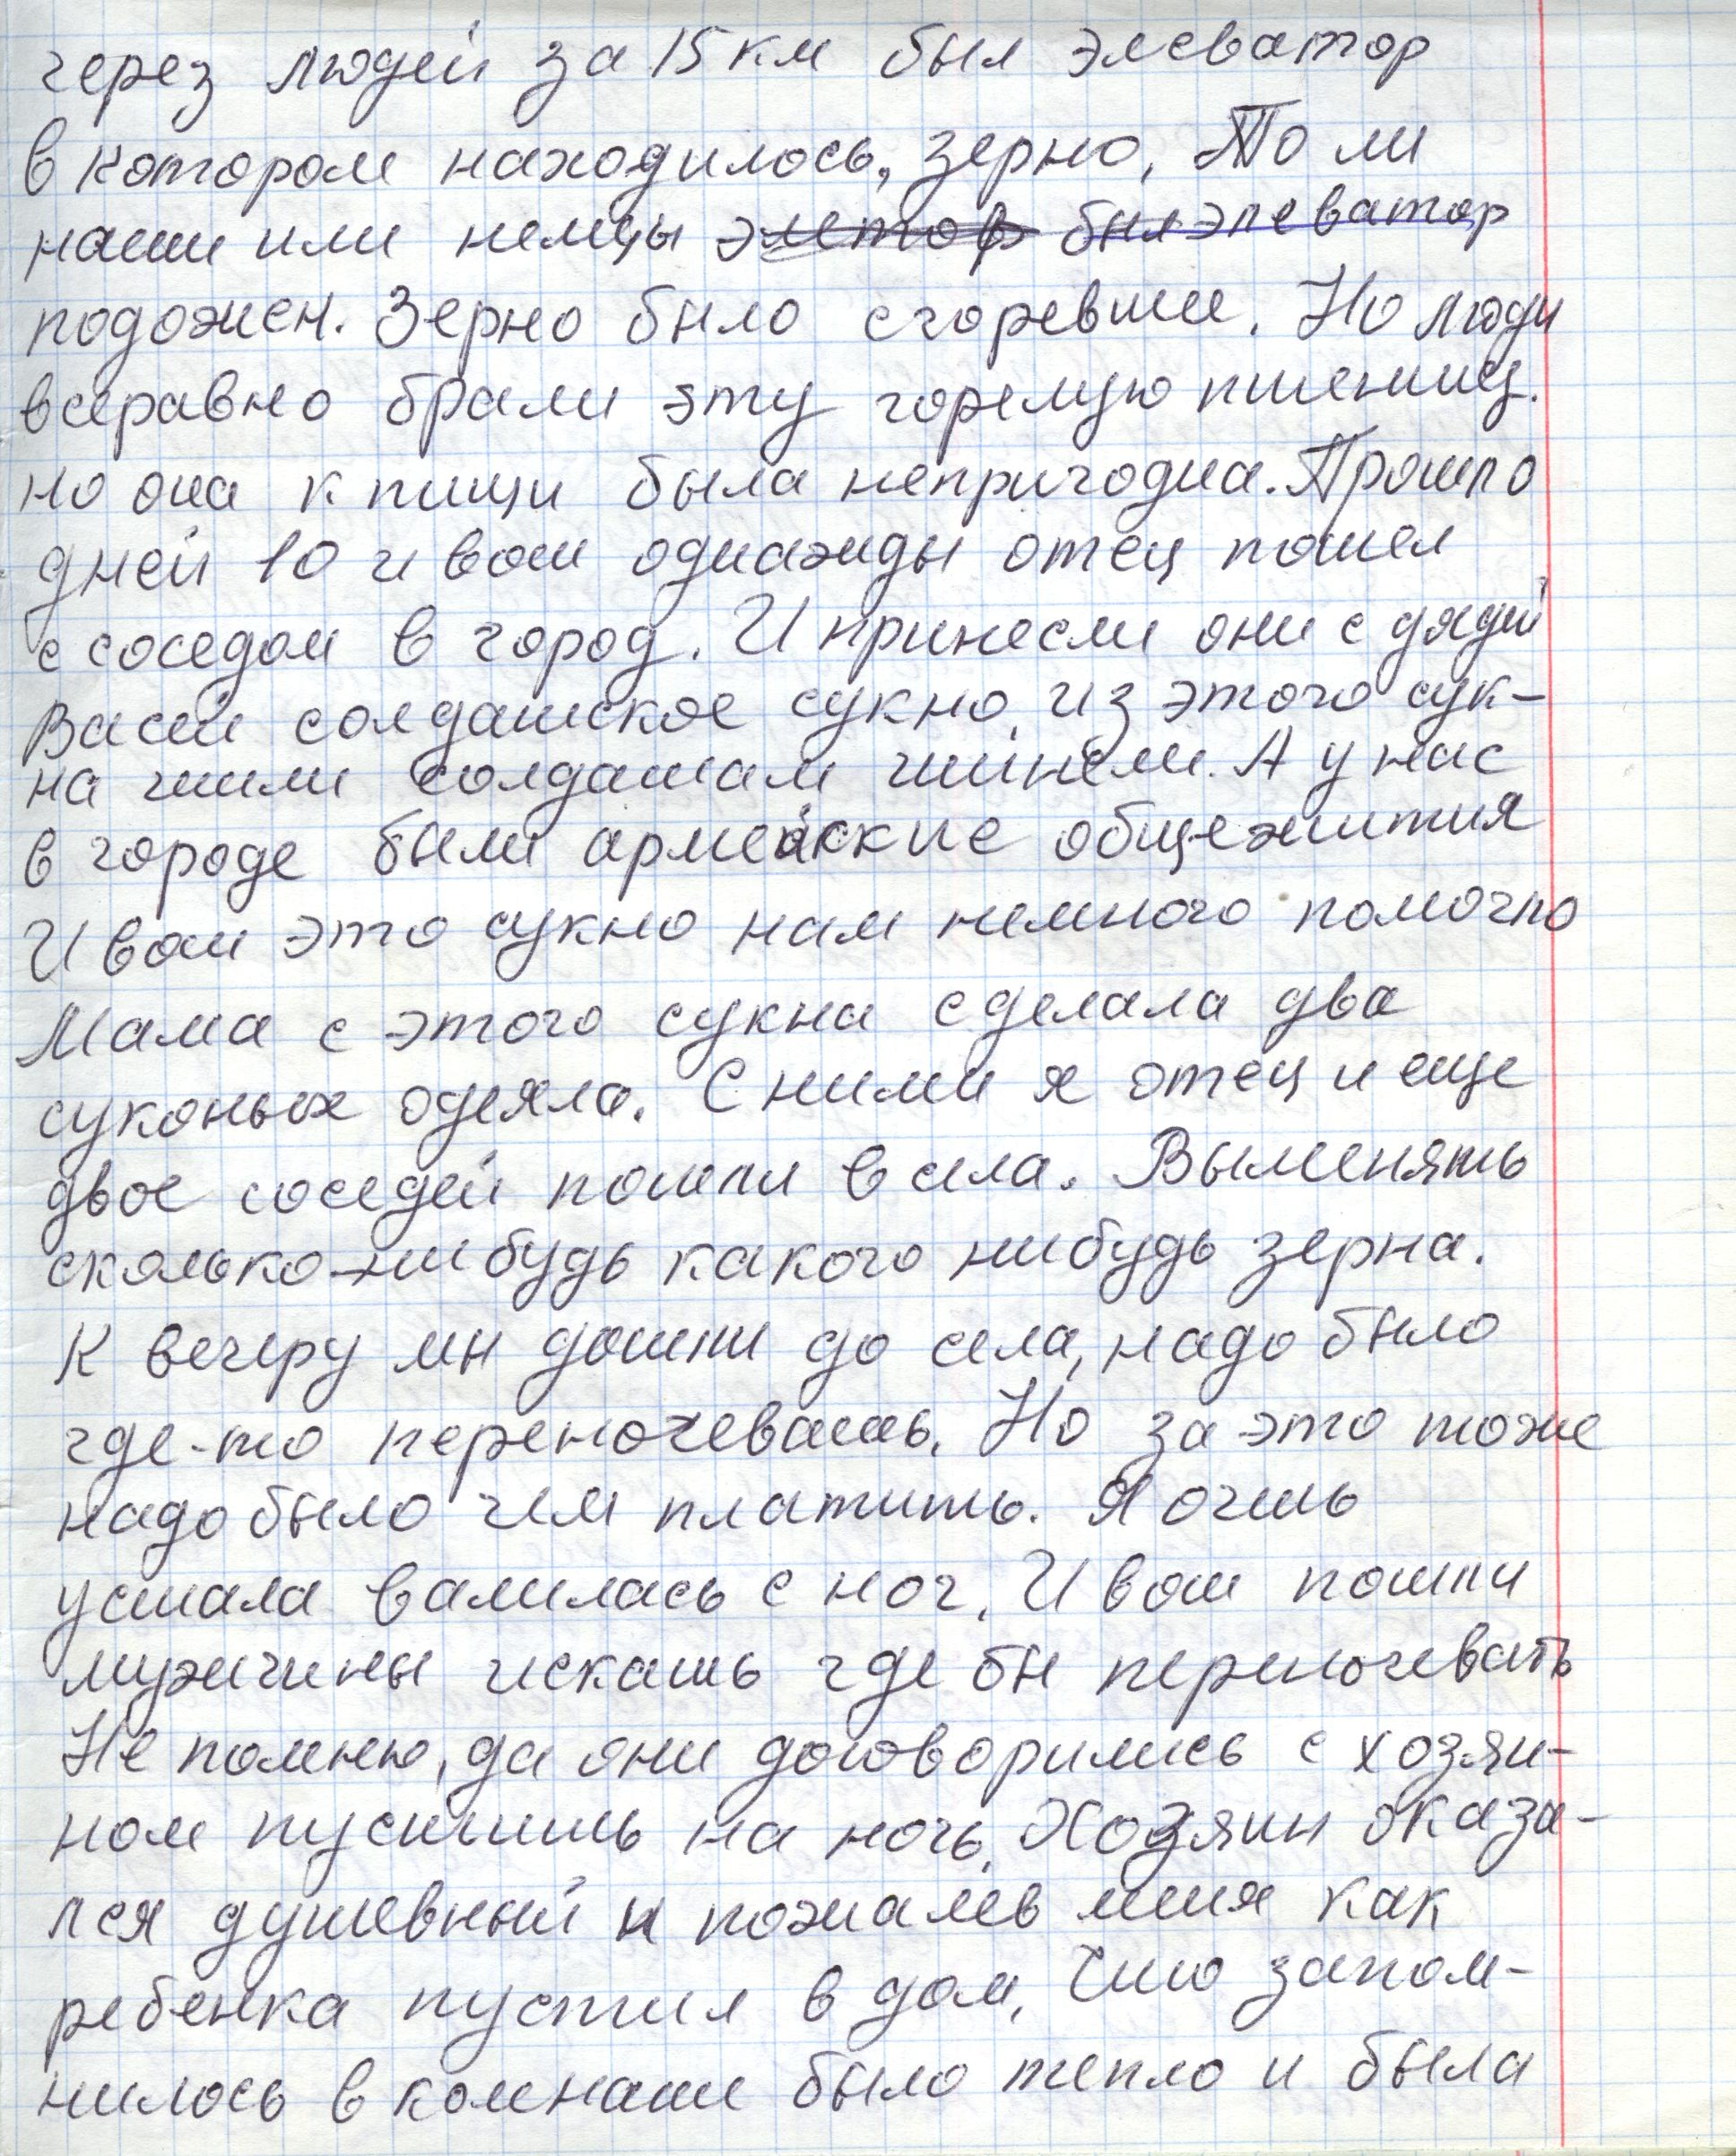 через людей за 15 км был элеватор
в котором находилось, зерно, То ли
наши или немцы элетор был элеватор
подожен. Зерно было сгоревшее. Но люди
всеравно брали эту горелую пшеницу.
но она к пищи была непригодна. Прошло
дней 10 и вот однажды отец пошел
с соседом в город. И принесли они с дядей
Васей солдатское сукно, из этого сук-
на шили солдатам шинели. А у нас
в городе были армейские общежития
И вот это сукно нам немного помогло
Мама с этого сукна сделала два
суконых одеяла. С ними я отец и еще
двое соседей пошли в села. Выменять
сколько-нибудь какого нибудь зерна.
К вечеру мы дошли до села, надо было
где-то переночевать. Но за это тоже
надо было чем платить. Я очень
устала валилась с ног. И вот пошли
мужчины искать где бы переночевать
Не помню, да они договорились с хозяи-
ном пустить на ночь. Хозяин оказа-
лся душевный и пожалев меня как
ребенка пустил в дом, Что запом-
нилось в комнате было тепло и была